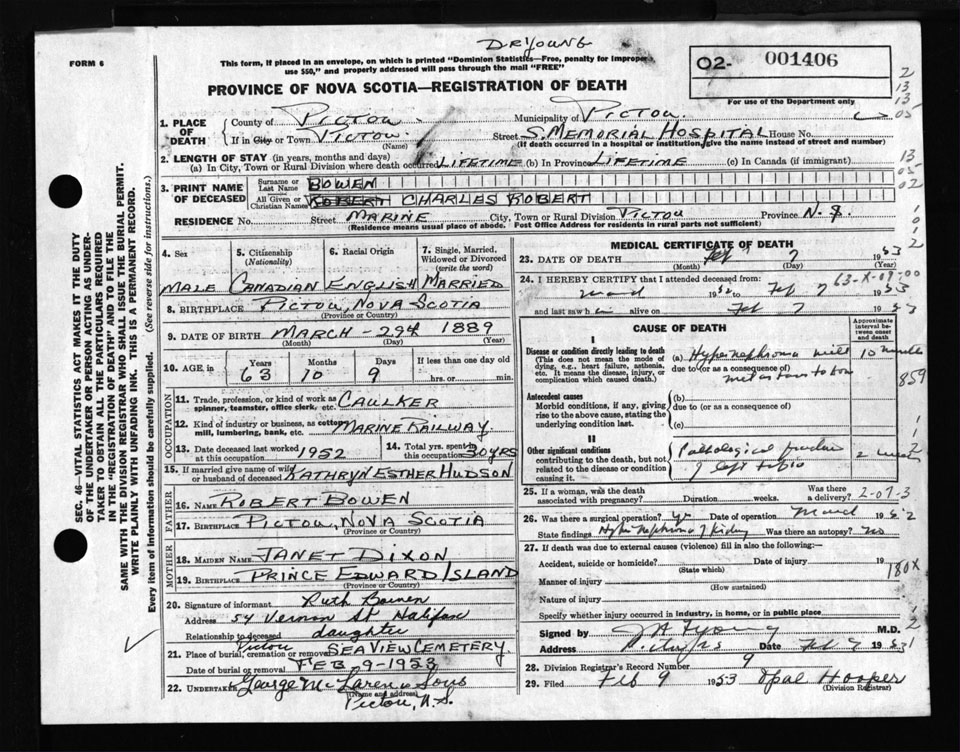 DR YOUNG
FORM 6
This form, if placed in an envelope, on which is printed "Dominion Statistics—Free, penalty for improper
use $50," and properly addressed will pass through the mail "FREE"
02- 001406
For use of the Department only
PROVINCE OF NOVA SCOTIA—REGISTRATION OF DEATH
1. PLACE OF DEATH
County of PICTOU Municipality of PICTOU
If in City or Town PICTOU (Name) Street S. MEMORIAL HOSPITAL House No.
(If death occurred in a hospital or institution, give the name instead of street and number)
2. LENGTH OF STAY (in years, months and days)
(a) In City, Town or Rural Division where death occurred LIFETIME (b) In Province LIFETIME (c) In Canada (if immigrant)
3. PRINT NAME OF DECEASED
Surname or Last Name BOWEN
All Given or Christian Names ROBERT CHARLES ROBERT
RESIDENCE No. Street MARINE City, Town or Rural Division PICTOU Province N.S.
(Residence means usual place of abode. Post Office Address for residents in rural parts not sufficient)
2
13
13
05
13
05
02
SEC. 46—VITAL STATISTICS ACT MAKES IT THE DUTY
OF THE UNDERTAKER OR PERSON ACTING AS UNDER-
TAKER TO OBTAIN ALL THE PARTICULARS REQUIRED
IN THE "REGISTRATION OF DEATH" AND TO FILE THE
SAME WITH THE DIVISION REGISTRAR WHO SHALL ISSUE THE BURIAL PERMIT.
WRITE PLAINLY WITH UNFADING INK. THIS IS A PERMANENT RECORD.
Every item of information should be carefully supplied. (See reverse side for instructions.)
4. Sex 5. Citizenship (Nationality) 6. Racial Origin 7. Single, Married, Widowed or Divorced (write the word)
MALE CANADIAN ENGLISH MARRIED
8. BIRTHPLACE PICTOU, NOVA SCOTIA
(Province or Country)
9. DATE OF BIRTH MARCH – 29th 1889
(Month) (Day) (Year)
10. AGE in Years Months Days If less than one day old
63 10 9 hrs. or min.
OCCUPATION
11. Trade, profession, or kind of work as spinner, teamster, office clerk, etc. CAULKER
12. Kind of industry or business, as cotton mill, lumbering, bank, etc. MARINE RAILWAY
13. Date deceased last worked at this occupation 1952 14. Total yrs. spent in this occupation 30 YRS
15. If married give name of wife or husband of deceased KATHRYN ESTHER HUDSON
FATHER
16. NAME ROBERT BOWEN
17. BIRTHPLACE PICTOU, NOVA SCOTIA
MOTHER
18. MAIDEN NAME JANET DIXON
19. BIRTHPLACE PRINCE EDWARD ISLAND
(Province or Country)
20. Signature of informant Ruth Bowen
Address 54 Vernon St Halifax
Relationship to deceased daughter
21. Place of burial, cremation or removal Pictou SEAVIEW CEMETERY
Date of burial or removal FEB 9-1953
22. UNDERTAKER George McLaren & Sons
(Name and address)
Pictou, N.S.
MEDICAL CERTIFICATE OF DEATH
23. DATE OF DEATH Feb 7 1953
(Month) (Day) (Year)
24. I HEREBY CERTIFY that I attended deceased from:
63-X-09-00
1952 to Feb 7 1953
and last saw h alive on Feb 7 1953
CAUSE OF DEATH
Approximate interval between onset and death
I
Disease or condition directly leading to death
(This does not mean the mode of dying, e.g., heart failure, asthenia, etc. It means the disease, injury, or complication which caused death.)
(a) Hypernephroma with 10 months
due to (or as a consequence of)
metastases to bone
859
Antecedent causes
Morbid conditions, if any, giving rise to the above cause, stating the underlying condition last.
(b)
due to (or as a consequence of)
(c)
II
Other significant conditions
contributing to the death, but not related to the disease or condition causing it.
Pathological fracture 2 weeks
of left
25. If a woman, was the death associated with pregnancy? Duration weeks. Was there a delivery? 2-07-3
26. Was there a surgical operation? yes Date of operation March 1952
State findings Hypernephroma of Kidney Was there an autopsy? no
27. If death was due to external causes (violence) fill in also the following:—
Accident, suicide or homicide? Date of injury 19
(State which)
180X
Manner of injury
(How sustained)
Nature of injury
Specify whether injury occurred in industry, in home, or in public place
Signed by J A Young M.D.
Address Pictou, NS Date Feb 9 1953
28. Division Registrar's Record Number 9
29. Filed Feb 9 1953 Opal Hooper
(Division Registrar)